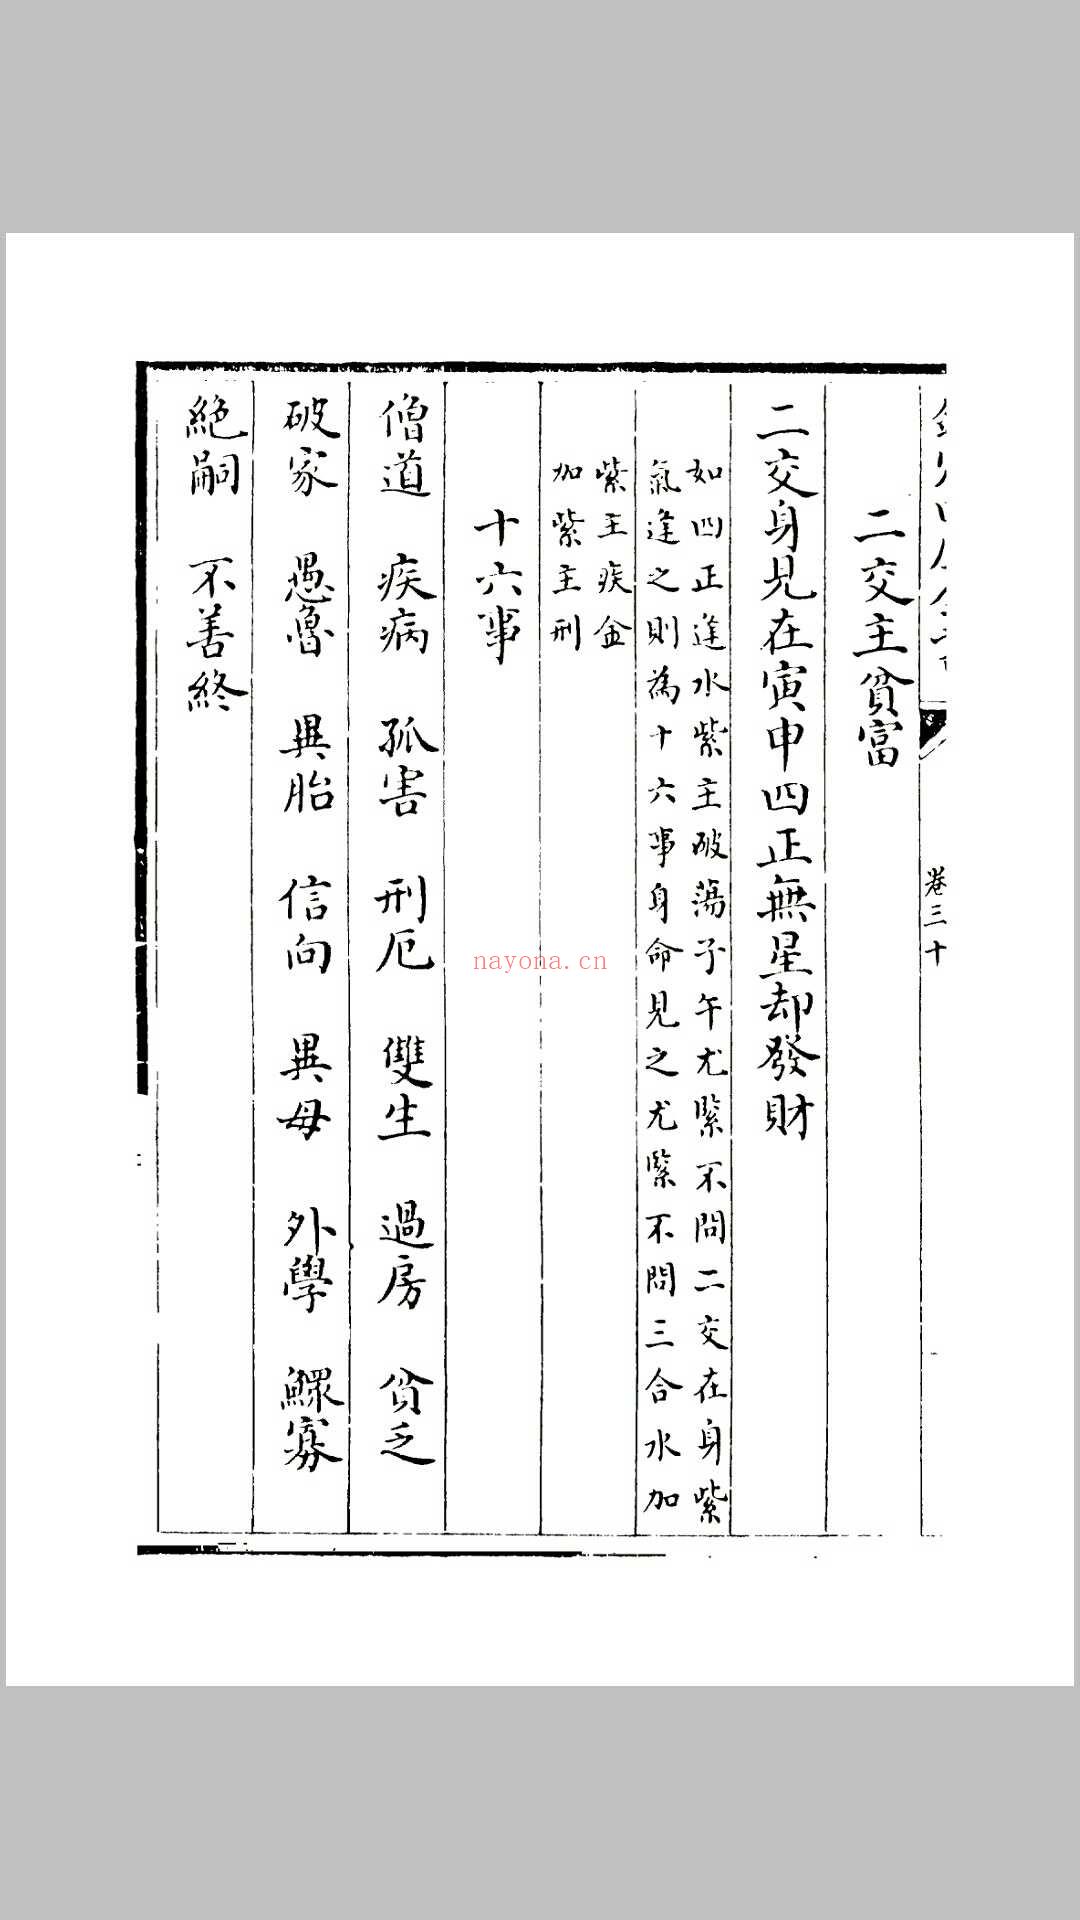 卷三十
二交主貧富
二交身見在寅申四正無星却發財
如四正逢水紫主破蕩子午尤緊不問二交在身紫
氣逢之則為十六事身命見之尤緊不問三合水加
紫主疾金
加紫主刑
十六事
僧道　疾病　孤害　刑厄　雙生　過房　貧乏
破家　愚魯　異胎　信向　異母　外學　鰥寡
絶嗣　不善終
nayona.cn